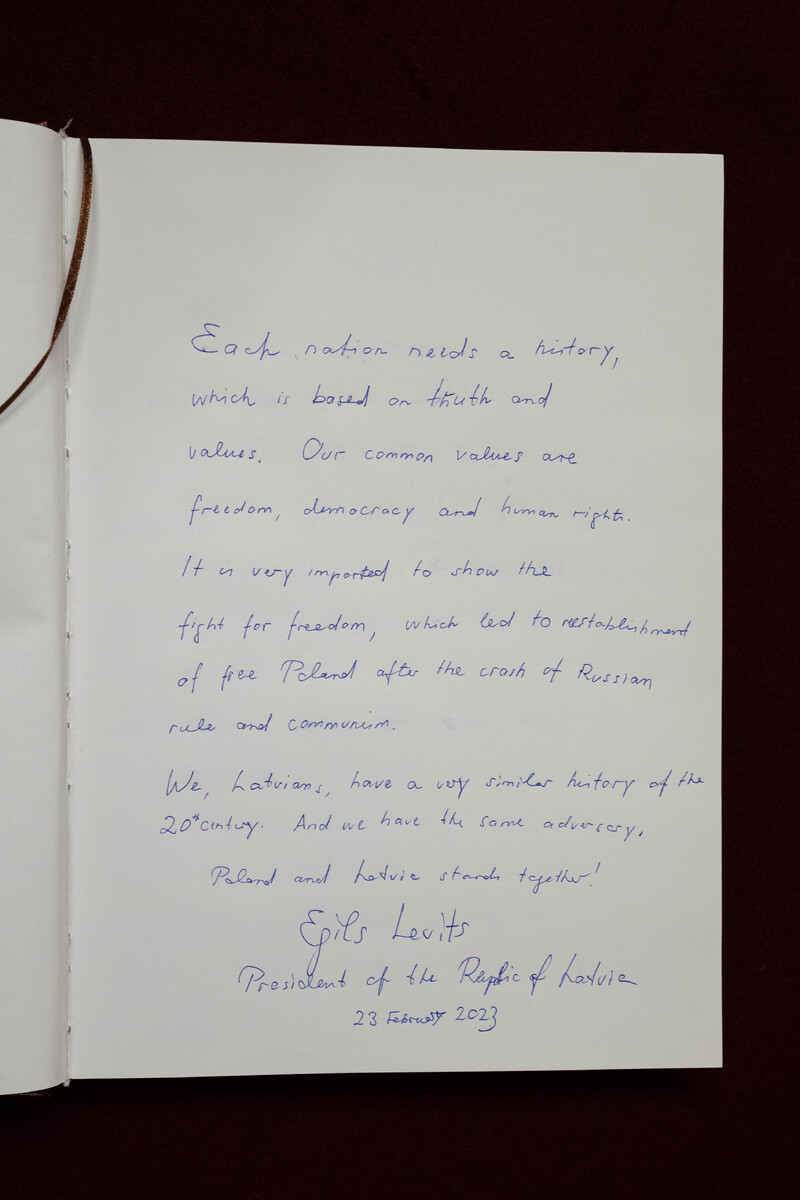 Each nation needs a history,
which is based on truth and
values. Our common values are
freedom, democracy and human rights.
It is very imported to show the
fight for freedom, which led to reestablishment
of free Poland after the crash of Russian
rule and communism.
We, Latvians, have a very similar history of the
20th century. And we have the same adversary.
Poland and Latvia stands together!
Egils Levits
President of the Replic of Latvia
23 February 2023